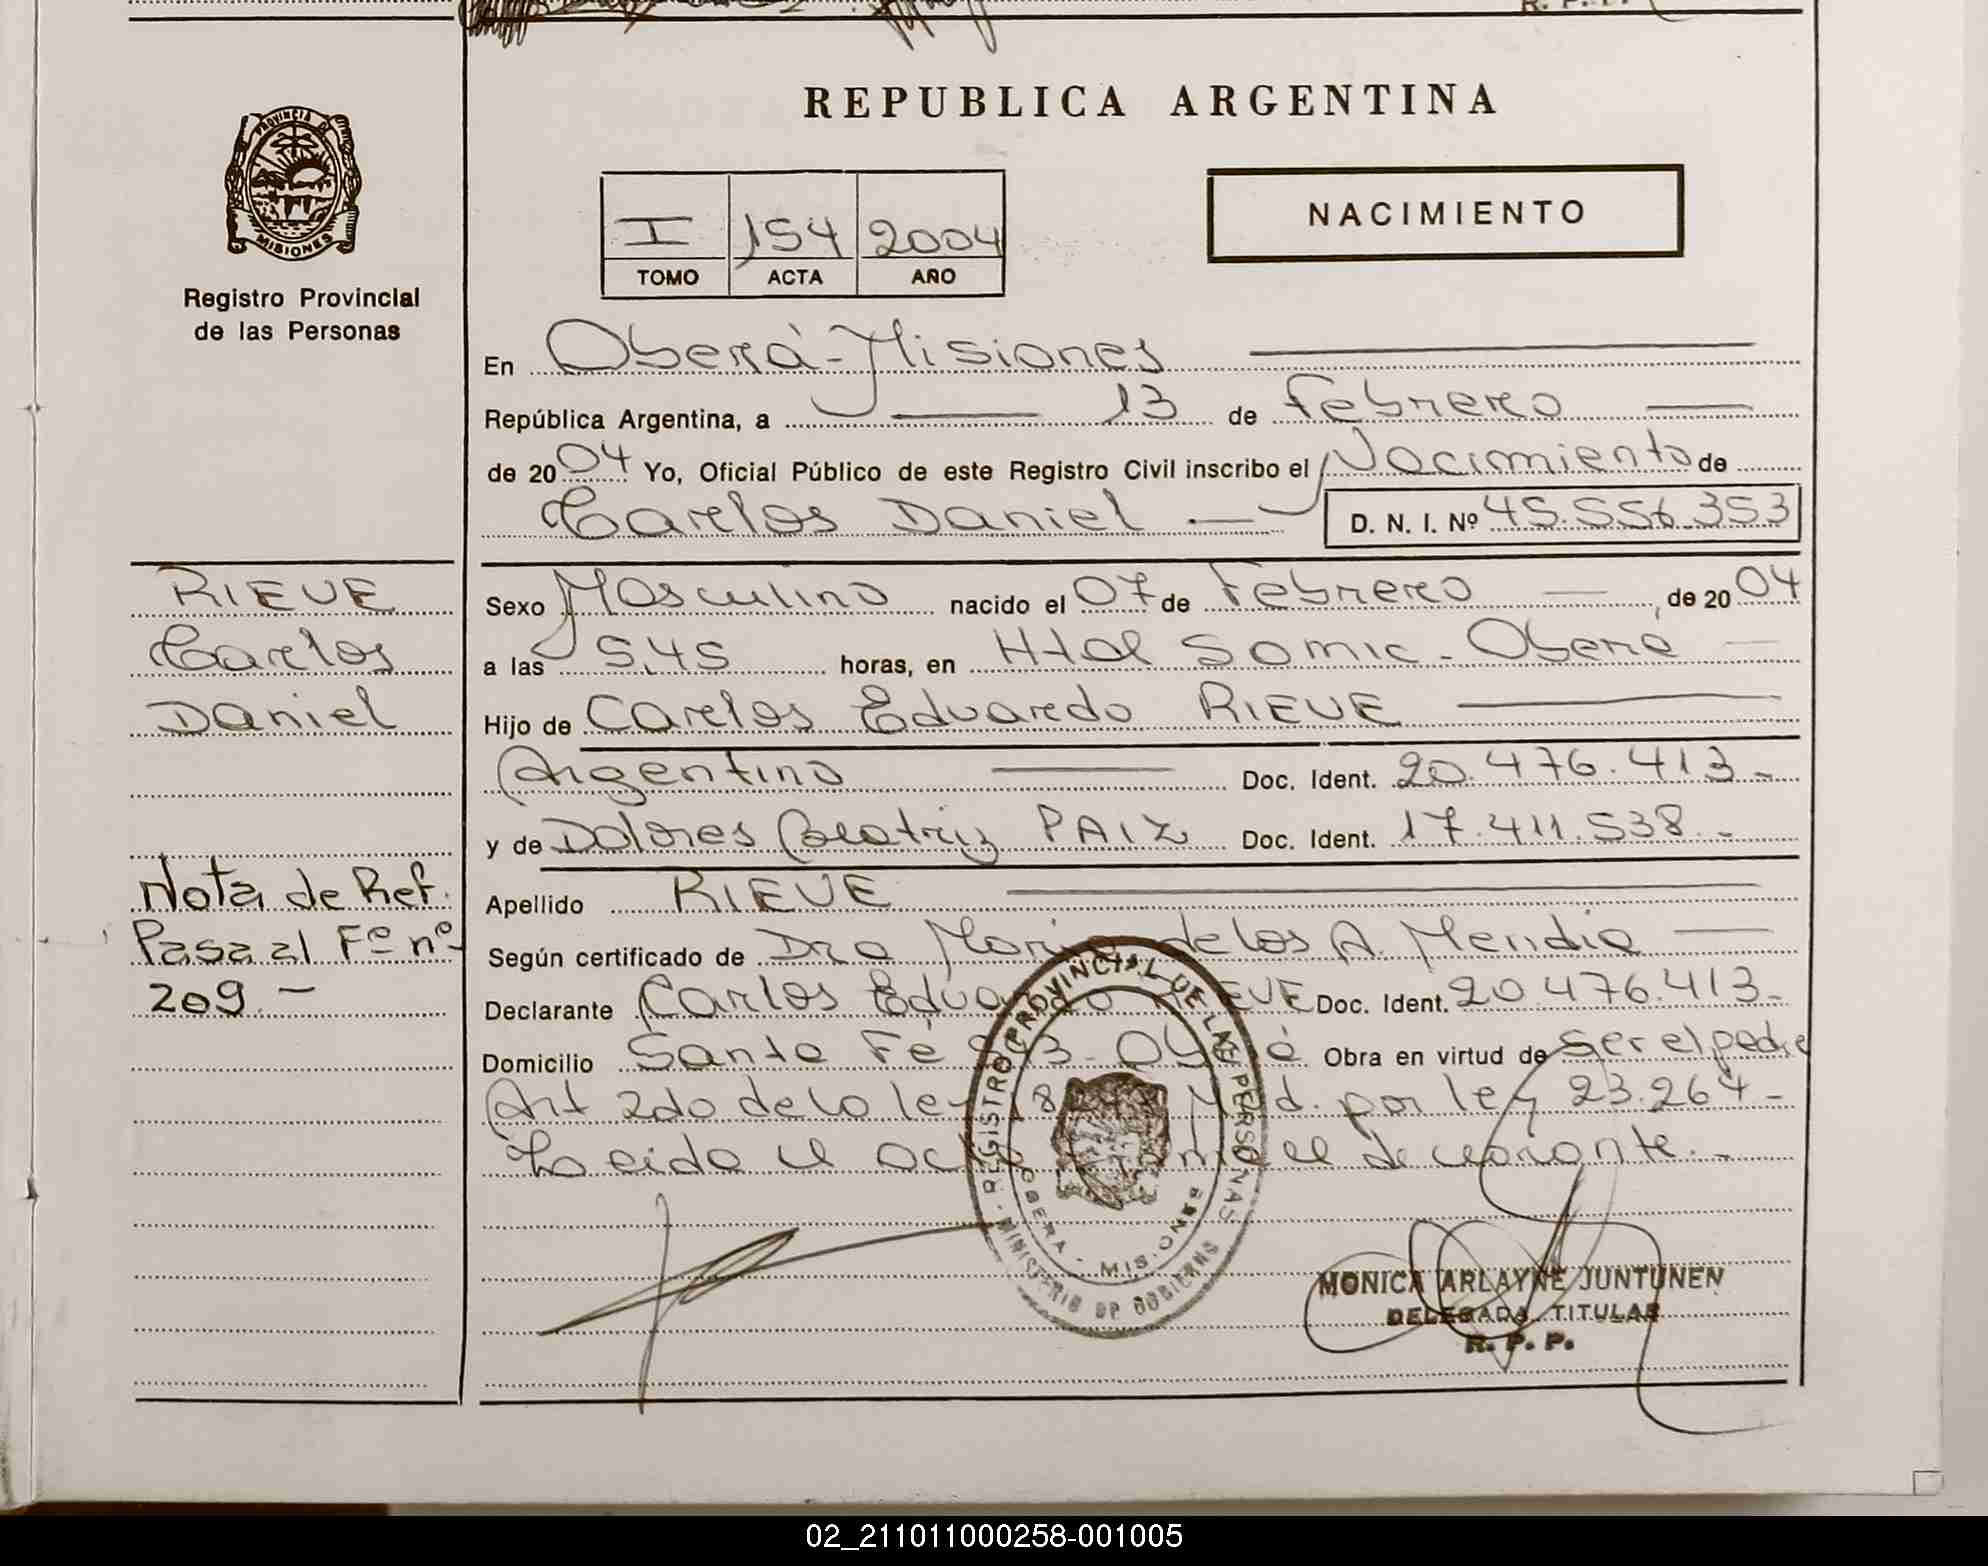 REPUBLICA ARGENTINA
PROVINCIA DE
MISIONES
Registro Provincial
de las Personas
I 154 2004
TOMO ACTA AÑO
NACIMIENTO
En Oberá-Misiones
República Argentina, a 13 de Febrero
de 2004 Yo, Oficial Público de este Registro Civil inscribo el Nacimiento de
Carlos Daniel D. N. I. Nº 45.556.353
RIEVE
Carlos
Daniel
Nota de Ref.
Pasa al Fº nº
209.-
Sexo Masculino nacido el 07 de Febrero de 2004
a las 5,45 horas, en Htal Samic - Oberá
Hijo de Carlos Eduardo RIEVE
Argentino Doc. Ident. 20.476.413.-
y de Dolores Beatriz PAIZ Doc. Ident. 17.411.538.-
Apellido RIEVE
Según certificado de Dra Maria de los A. Meridia
Declarante Carlos Eduardo RIEVE Doc. Ident. 20.476.413.-
Domicilio Santa Fé Oberá Obra en virtud de ser el padre
Art 2do de la ley Mod. por ley 23.264.-
Leida el acta el declarante.-
REGISTRO PROVINCIAL DE LAS PERSONAS
MINISTERIO DE GOBIERNO
OBERA - MISIONES
MONICA ARLAYNE JUNTUNEN
DELEGADA TITULAR
R. P. P.
02_211011000258-001005